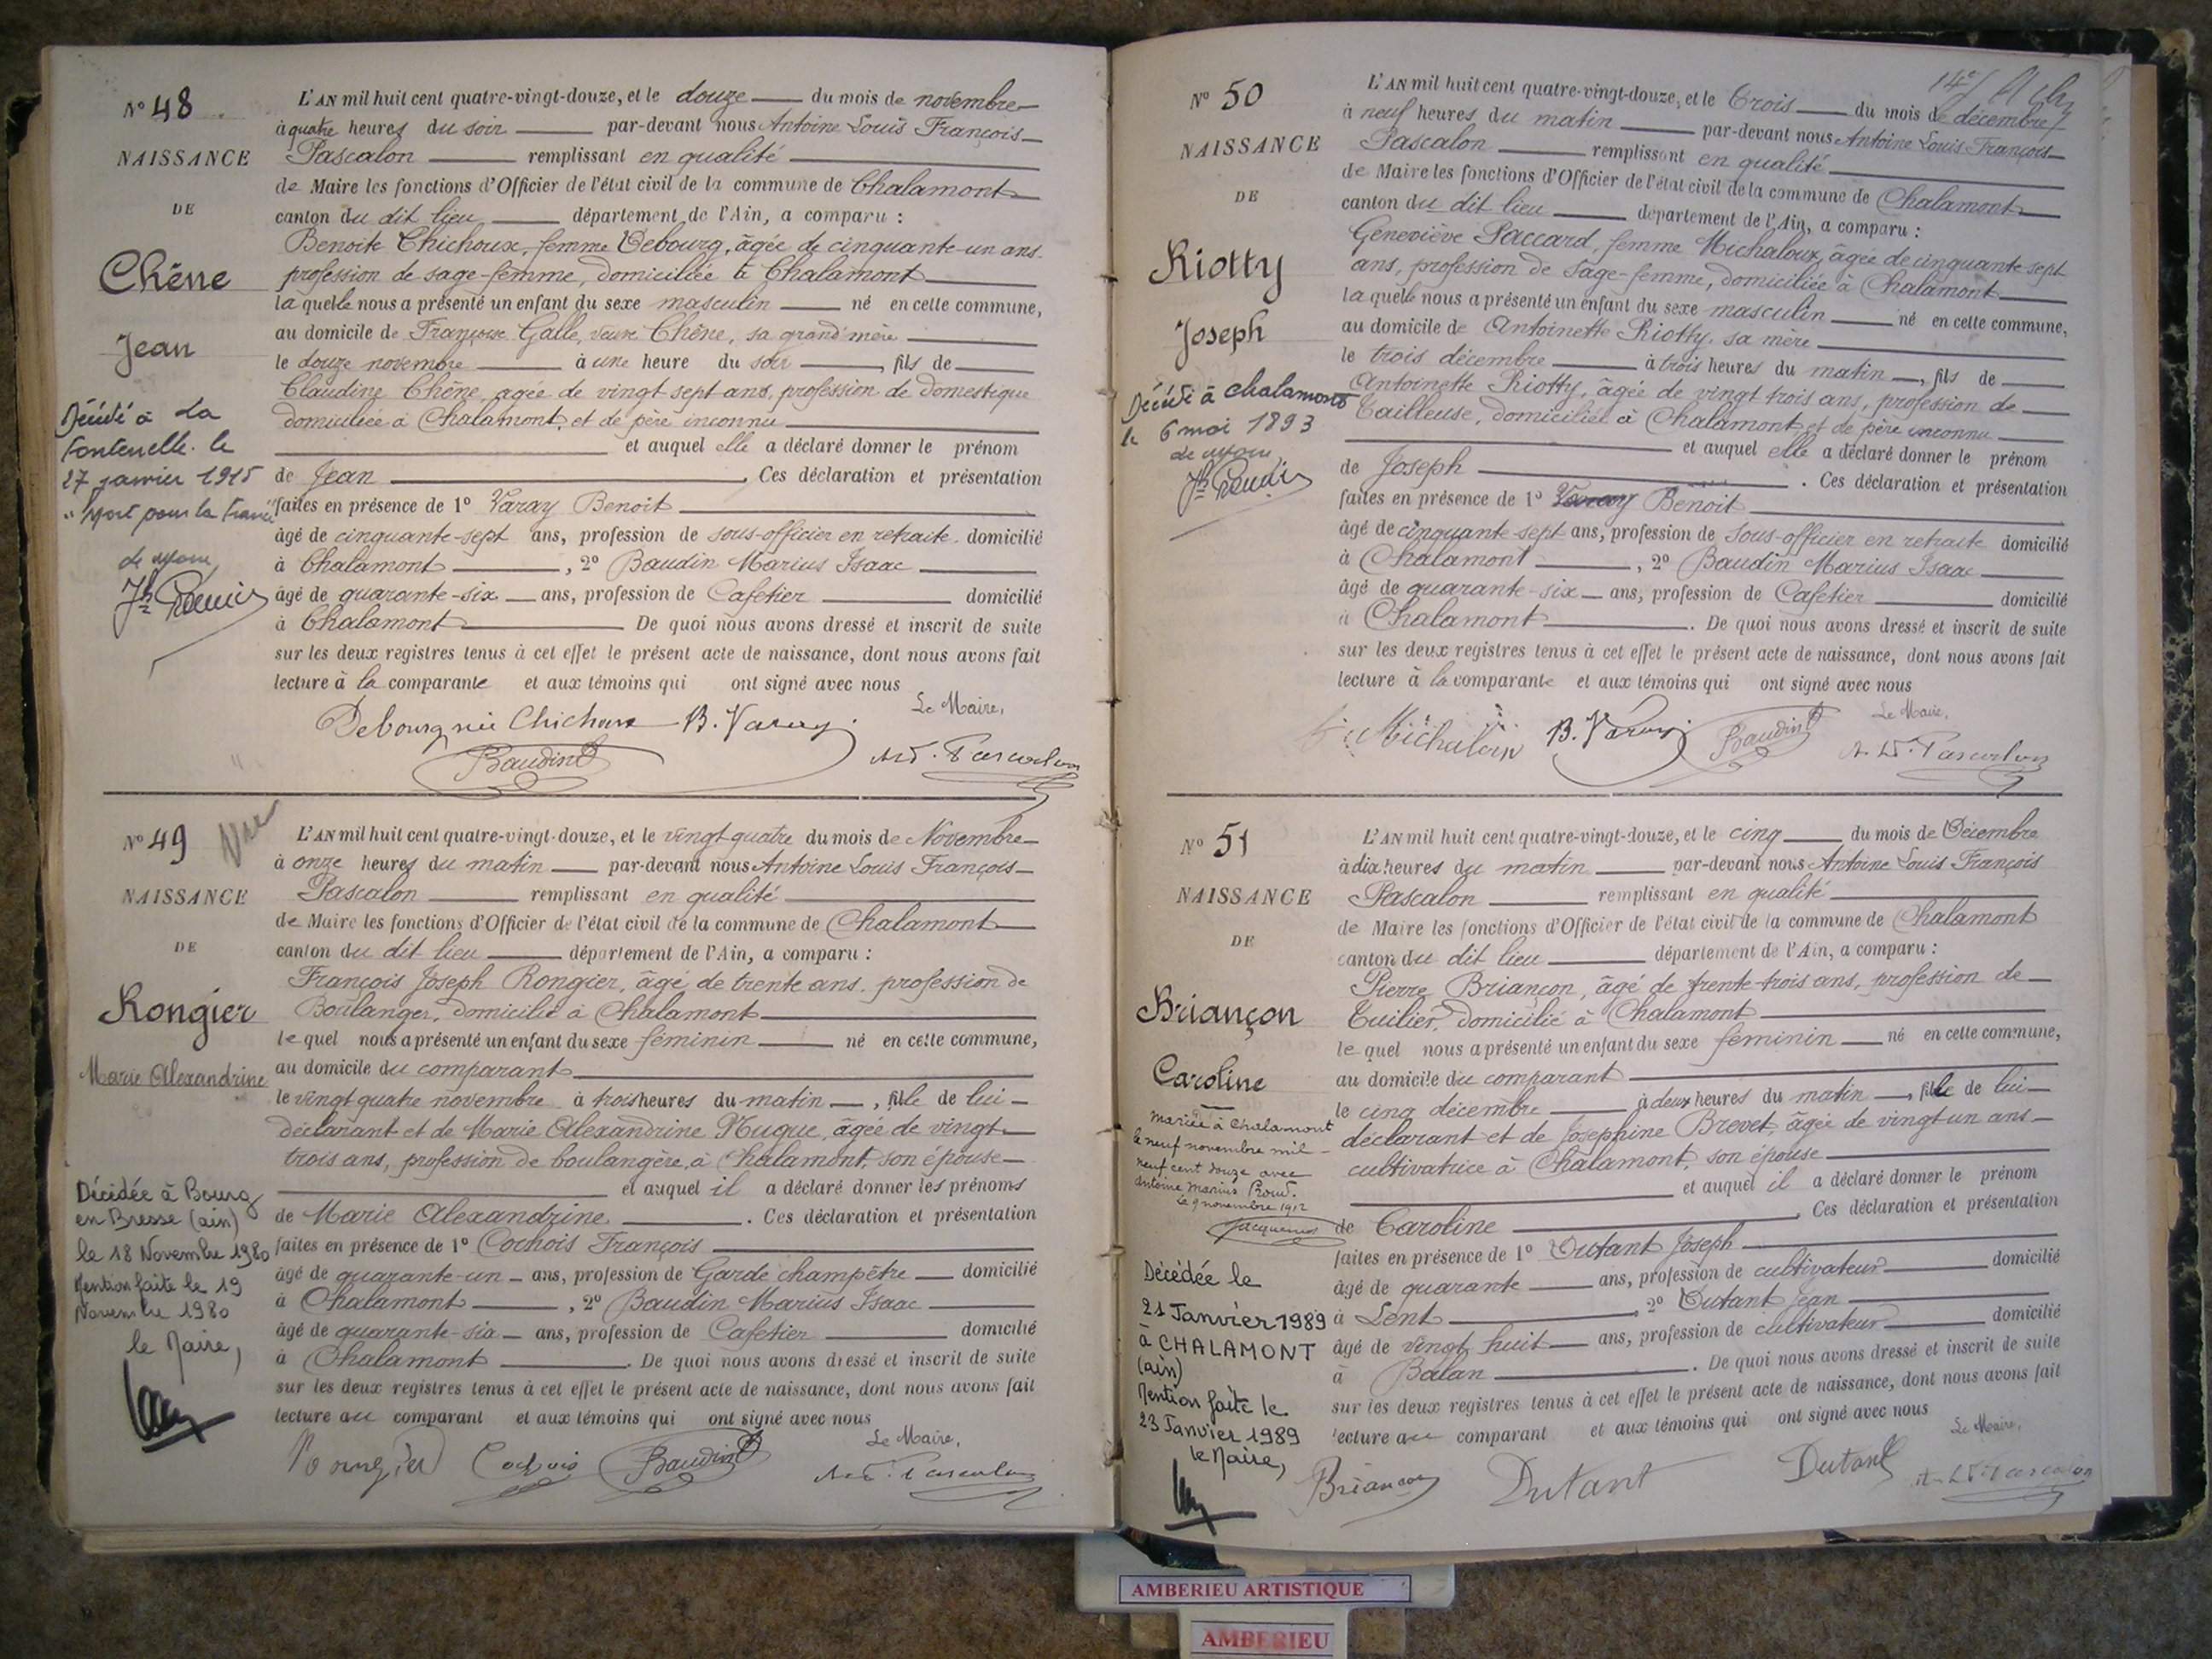 N° 48
NAISSANCE
DE
Chêne
Jean
Décédé à La
Fontenelle le
27 janvier 1915
"Mort pour la France"
L'AN mil huit cent quatre-vingt-douze, et le douze du mois de novembre
à quatre heures du soir par-devant nous Antoine Louis François
Pascalon remplissant en qualité
de Maire les fonctions d'Officier de l'état civil de la commune de Chalamont
canton du dit lieu département de l'Ain, a comparu :
Benoite Chichoux, femme Debourg, âgée de cinquante-un ans
profession de sage-femme, domiciliée à Chalamont
laquelle nous a présenté un enfant du sexe masculin né en cette commune,
au domicile de Françoise Galle, veuve Chêne, sa grand'mère
le douze novembre à une heure du soir, fils de
Claudine Chêne, agée de vingt sept ans, profession de domestique
domiciliée à Chalamont, et de père inconnu
et auquel elle a déclaré donner le prénom
de Jean. Ces déclaration et présentation
faites en présence de 1° Varay Benoit
âgé de cinquante-sept ans, profession de sous-officier en retraite domicilié
à Chalamont, 2° Baudin Marius Isaac
âgé de quarante-six ans, profession de Cafetier domicilié
à Chalamont De quoi nous avons dressé et inscrit de suite
sur les deux registres tenus à cet effet le présent acte de naissance, dont nous avons fait
lecture à la comparante et aux témoins qui ont signé avec nous
Le Maire,
Debourg née Chichoux B. Varay
Baudin A.L.F. Pascalon
N° 49
NAISSANCE
DE
Rongier
Marie Alexandrine
Décédée à Bourg
en Bresse (ain)
le 18 Novembre 1980
Mention faite le 19
Novembre 1980
le Maire,
L'AN mil huit cent quatre-vingt-douze, et le vingt quatre du mois de Novembre
à onze heures du matin par-devant nous Antoine Louis François
Pascalon remplissant en qualité
de Maire les fonctions d'Officier de l'état civil de la commune de Chalamont
canton du dit lieu département de l'Ain, a comparu :
François Joseph Rongier, âgé de trente ans, profession de
Boulanger, domicilié à Chalamont
lequel nous a présenté un enfant du sexe féminin né en cette commune,
au domicile du comparant
le vingt quatre novembre à trois heures du matin, fille de lui
déclarant et de Marie Alexandrine Hugue, âgée de vingt
trois ans, profession de boulangère, à Chalamont, son épouse
et auquel il a déclaré donner les prénoms
de Marie Alexandrine. Ces déclaration et présentation
faites en présence de 1° Cochois François
âgé de quarante-un ans, profession de Garde champêtre domicilié
à Chalamont, 2° Baudin Marius Isaac
âgé de quarante-six ans, profession de Cafetier domicilié
à Chalamont. De quoi nous avons dressé et inscrit de suite
sur les deux registres tenus à cet effet le présent acte de naissance, dont nous avons fait
lecture au comparant et aux témoins qui ont signé avec nous
Le Maire,
Rongier Cochois Baudin A.L.F. Pascalon
N° 50
NAISSANCE
DE
Riotty
Joseph
Décédé à Chalamont
le 6 mai 1893
L'AN mil huit cent quatre-vingt-douze, et le trois du mois de décembre
à neuf heures du matin par-devant nous Antoine Louis François
Pascalon remplissant en qualité
de Maire les fonctions d'Officier de l'état civil de la commune de Chalamont
canton du dit lieu département de l'Ain, a comparu :
Geneviève Paccard, femme Michaloux, âgée de cinquante sept
ans, profession de sage-femme, domiciliée à Chalamont
laquelle nous a présenté un enfant du sexe masculin né en cette commune,
au domicile de Antoinette Riotty, sa mère
le trois décembre à trois heures du matin, fils de
Antoinette Riotty, âgée de vingt trois ans, profession de
Tailleuse, domiciliée à Chalamont et de père inconnu
et auquel elle a déclaré donner le prénom
de Joseph. Ces déclaration et présentation
faites en présence de 1° Varay Benoit
âgé de cinquante-sept ans, profession de sous-officier en retraite domicilié
à Chalamont, 2° Baudin Marius Isaac
âgé de quarante-six ans, profession de Cafetier domicilié
à Chalamont. De quoi nous avons dressé et inscrit de suite
sur les deux registres tenus à cet effet le présent acte de naissance, dont nous avons fait
lecture à la comparante et aux témoins qui ont signé avec nous
Le Maire,
B. Varay Baudin A.L.F. Pascalon
N° 51
NAISSANCE
DE
Briançon
Caroline
Mariée à Chalamont
le neuf novembre mil
neuf cent douze avec
Antoine Marius Proud.
Le 9 novembre 1912
Jacquemet
Décédée le
21 Janvier 1989
à CHALAMONT
(ain)
Mention faite le
23 Janvier 1989
le Maire,
L'AN mil huit cent quatre-vingt-douze, et le cinq du mois de Décembre
à dix heures du matin par-devant nous Antoine Louis François
Pascalon remplissant en qualité
de Maire les fonctions d'Officier de l'état civil de la commune de Chalamont
canton du dit lieu département de l'Ain, a comparu :
Pierre Briançon, âgé de trente-trois ans, profession de
Tuilier, domicilié à Chalamont
lequel nous a présenté un enfant du sexe féminin né en cette commune,
au domicile du comparant
le cinq décembre à deux heures du matin, fille de lui
déclarant et de Josephine Brevet, âgée de vingt un ans
cultivatrice à Chalamont, son épouse
et auquel il a déclaré donner le prénom
de Caroline. Ces déclaration et présentation
faites en présence de 1° Dutant Joseph
âgé de quarante ans, profession de cultivateur domicilié
à Lent, 2° Dutant Jean
âgé de vingt huit ans, profession de cultivateur domicilié
à Balan. De quoi nous avons dressé et inscrit de suite
sur les deux registres tenus à cet effet le présent acte de naissance, dont nous avons fait
lecture au comparant et aux témoins qui ont signé avec nous
Le Maire,
Briançon Dutant Dutant A.L.F. Pascalon
AMBERIEU ARTISTIQUE
AMBERIEU